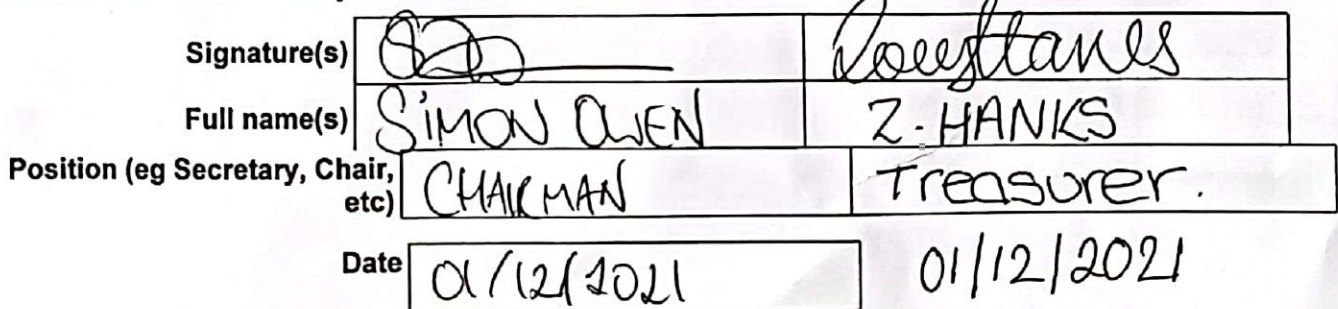 Signature(s)
Full name(s) SIMON OWEN Z. HANKS
Position (eg Secretary, Chair, etc) CHAIRMAN Treasurer.
Date 01/12/2021 01/12/2021